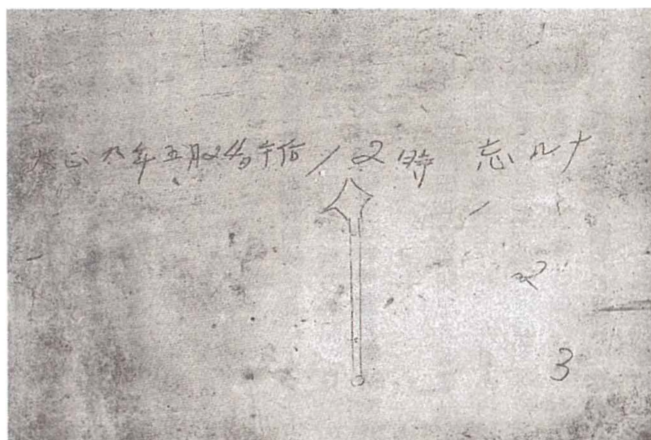 大正九年五月24日午后12時 忘ルナ
2
3